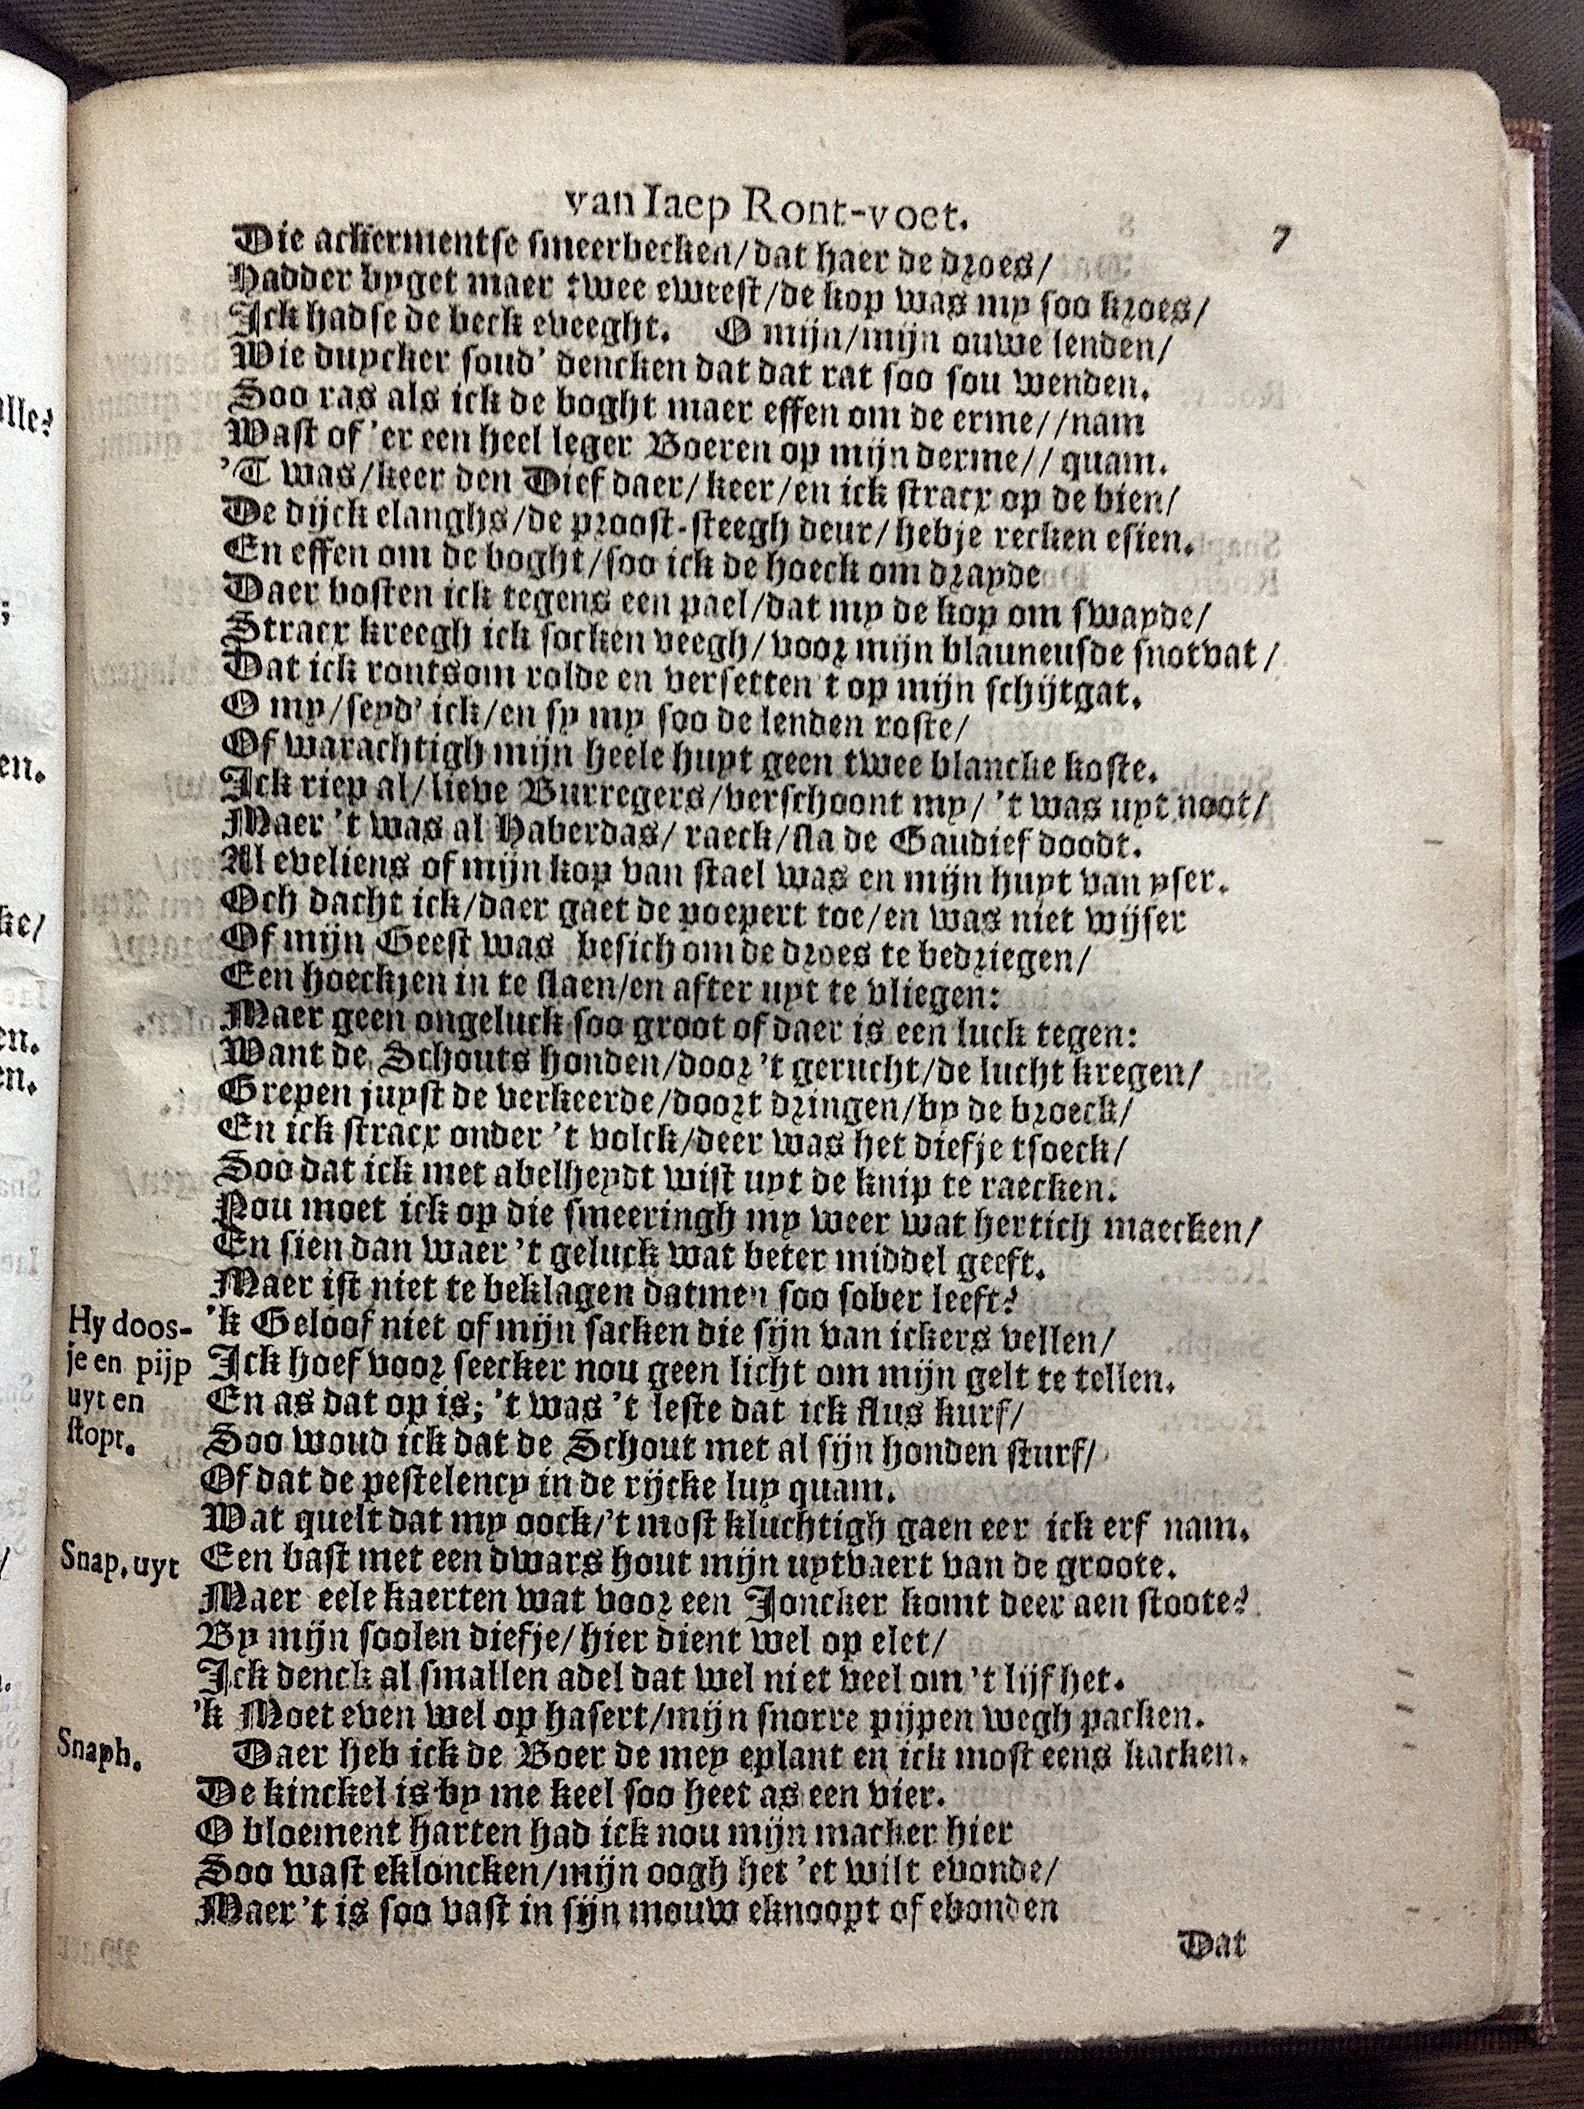 van Iaep Ront-voet.
7
Die ackermentse smeerbecken/dat haer de droes/
Hadder byget maer twee eweest/de kop was my soo kroes/
Ick hadse de beck eveeght. O mijn/mijn ouwe lenden/
Wie duycker soud' dencken dat dat rat soo sou wenden.
Soo ras als ick de boght maer effen om de erme//nam
Wast of 'er een heel leger Boeren op mijn derme//quam.
'T was/keer den Dief daer/keer/en ick stracx op de bien/
De dijck elanghs/de proost-steegh deur/hebje recken esien.
En effen om de boght/soo ick de hoeck om drayde
Daer bosten ick tegens een pael/dat my de kop om swayde/
Stracx kreegh ick socken veegh/voor mijn blauneusde snotvat/
Dat ick rontsom rolde en versetten 't op mijn schijtgat.
O my/seyd' ick/en sy my soo de lenden roste/
Of warachtigh mijn heele huyt geen twee blancke koste.
Ick riep al/lieve Burregers/verschoont my/'t was uyt noot/
Maer 't was al Haberdas/raeck/sla de Gaudief doodt.
Al eveliens of mijn kop van stael was en mijn huyt van yser.
Och dacht ick/daer gaet de poepert toe/en was niet wijser
Of mijn Geest was besich om de droes te bedriegen/
Een hoeckjen in te slaen/en after uyt te vliegen:
Maer geen ongeluck soo groot of daer is een luck tegen:
Want de Schouts honden/door 't gerucht/de lucht kregen/
Grepen juyst de verkeerde/doort dringen/by de broeck/
En ick stracx onder 't volck/deer was het diefje tsoeck/
Soo dat ick met abelheydt wist uyt de knip te raecken.
Nou moet ick op die smeeringh my weer wat hertich maecken/
En sien dan waer 't geluck wat beter middel geeft.
Maer ist niet te beklagen datmen soo sober leeft?
Hy doos- 'k Geloof niet of mijn sacken die sijn van ickers vellen/
je en pijp Ick hoef voor seecker nou geen licht om mijn gelt te tellen.
uyt en En as dat op is; 't was 't leste dat ick flus kurf/
stopt. Soo woud ick dat de Schout met al sijn honden sturf/
Of dat de pestelency in de rijcke luy quam.
Wat quelt dat my oock/'t most kluchtigh gaen eer ick erf nam.
Snap. uyt Een bast met een dwars hout mijn uytvaert van de groote.
Maer eele kaerten wat voor een Joncker komt deer aen stoote?
By mijn soolen diefje/hier dient wel op elet/
Ick denck al smallen adel dat wel niet veel om 't lijf het.
'k Moet even wel op hasert/mijn snorre pijpen wegh packen.
Snaph. Daer heb ick de Boer de mey eplant en ick most eens kacken.
De kinckel is by me keel soo heet as een vier.
O bloement harten had ick nou mijn macker hier
Soo wast ekloncken/mijn oogh het 'et wilt evonde/
Maer 't is soo vast in sijn mouw eknoopt of ebonden
Dat